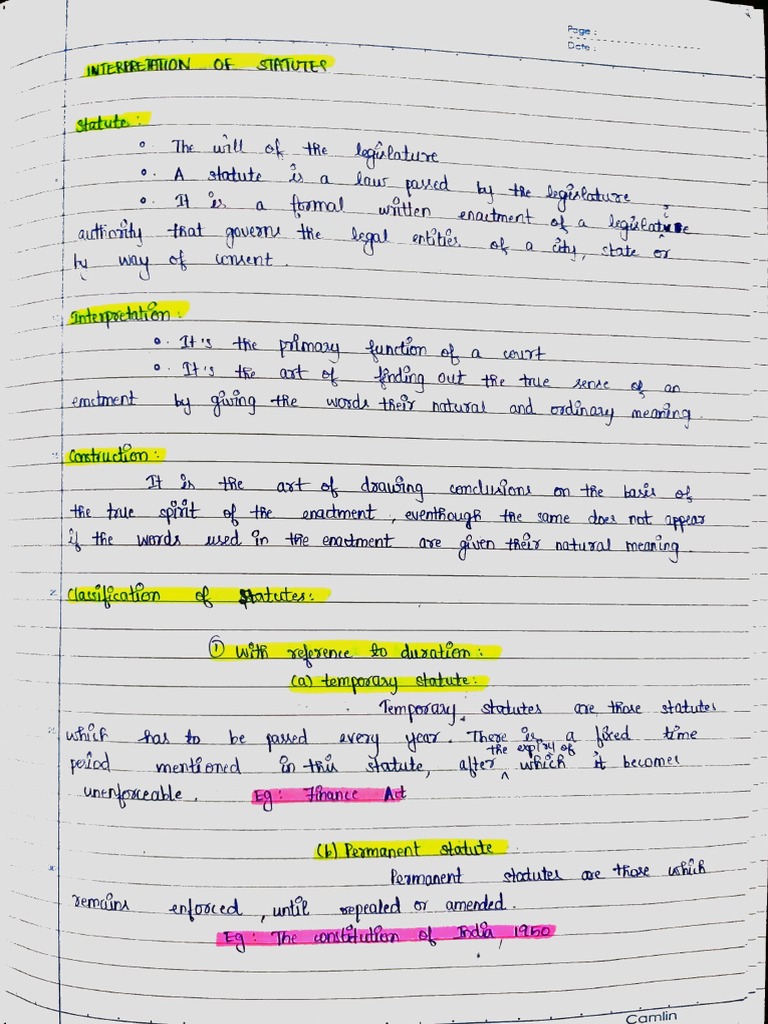 Page :
Date :
INTERPRETATION OF STATUTES
Statute :
The will of the legislature
A statute is a law passed by the legislature
It is a formal written enactment of a legislature
authority that governs the legal entities of a city, state or
by way of consent.
Interpretation :
It's the primary function of a court
It's the art of finding out the true sense of an
enactment by giving the words their natural and ordinary meaning.
Construction :
It is the art of drawing conclusions on the basis of
the true spirit of the enactment, eventhough the same does not appear
if the words used in the enactment are given their natural meaning.
Classification of Statutes :
① With reference to duration :
(a) temporary statute :
Temporary statutes are those statutes
which has to be passed every year. There is a fixed time
the expiry of
period mentioned in this statute, after ^ which it becomes
unenforceable. Eg : Finance Act
(b) Permanent statute
Permanent statutes are those which
remains enforced, until repealed or amended.
Eg : The constitution of India, 1950
Camlin